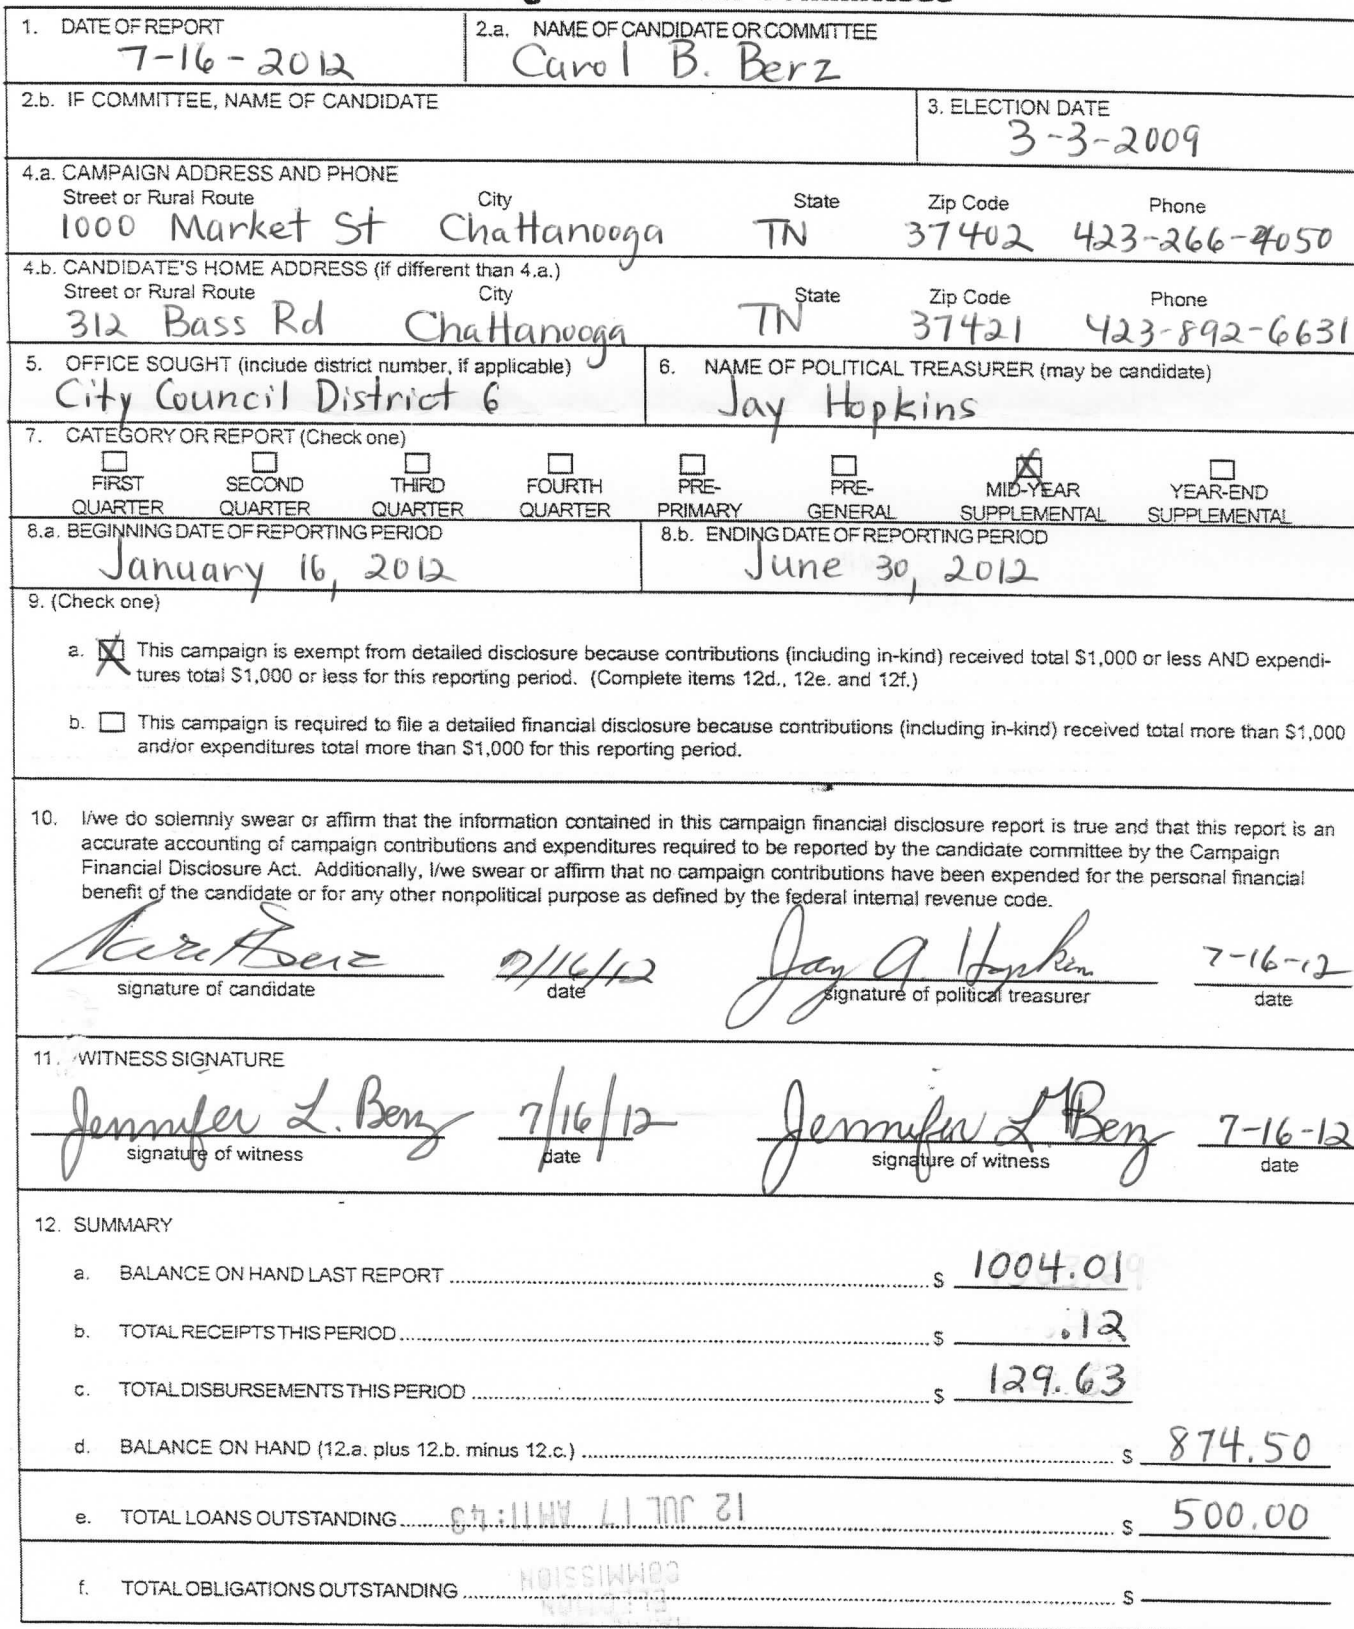 1. DATE OF REPORT
7-16-2012
2.a. NAME OF CANDIDATE OR COMMITTEE
Carol B. Berz
2.b. IF COMMITTEE, NAME OF CANDIDATE
3. ELECTION DATE
3-3-2009
4.a. CAMPAIGN ADDRESS AND PHONE
Street or Rural Route City State Zip Code Phone
1000 Market St Chattanooga TN 37402 423-266-4050
4.b. CANDIDATE'S HOME ADDRESS (if different than 4.a.)
Street or Rural Route City State Zip Code Phone
312 Bass Rd Chattanooga TN 37421 423-892-6631
5. OFFICE SOUGHT (include district number, if applicable)
City Council District 6
6. NAME OF POLITICAL TREASURER (may be candidate)
Jay Hopkins
7. CATEGORY OR REPORT (Check one)
FIRST SECOND THIRD FOURTH PRE- PRE- MID-YEAR YEAR-END
QUARTER QUARTER QUARTER QUARTER PRIMARY GENERAL SUPPLEMENTAL SUPPLEMENTAL
8.a. BEGINNING DATE OF REPORTING PERIOD
January 16, 2012
8.b. ENDING DATE OF REPORTING PERIOD
June 30, 2012
9. (Check one)
a. This campaign is exempt from detailed disclosure because contributions (including in-kind) received total $1,000 or less AND expendi-
tures total $1,000 or less for this reporting period. (Complete items 12d., 12e. and 12f.)
b. This campaign is required to file a detailed financial disclosure because contributions (including in-kind) received total more than $1,000
and/or expenditures total more than $1,000 for this reporting period.
10. I/we do solemnly swear or affirm that the information contained in this campaign financial disclosure report is true and that this report is an
accurate accounting of campaign contributions and expenditures required to be reported by the candidate committee by the Campaign
Financial Disclosure Act. Additionally, I/we swear or affirm that no campaign contributions have been expended for the personal financial
benefit of the candidate or for any other nonpolitical purpose as defined by the federal internal revenue code.
7/16/12 Jay A. Hopkins 7-16-12
signature of candidate date signature of political treasurer date
11. WITNESS SIGNATURE
Jennifer L. Berz 7/16/12 Jennifer L. Berz 7-16-12
signature of witness date signature of witness date
12. SUMMARY
a. BALANCE ON HAND LAST REPORT $ 1004.01
b. TOTAL RECEIPTS THIS PERIOD $ .12
c. TOTAL DISBURSEMENTS THIS PERIOD $ 129.63
d. BALANCE ON HAND (12.a. plus 12.b. minus 12.c.) $ 874.50
e. TOTAL LOANS OUTSTANDING $ 500.00
12 JUL 17 AM 11:43
f. TOTAL OBLIGATIONS OUTSTANDING $
ELECTION
COMMISSION